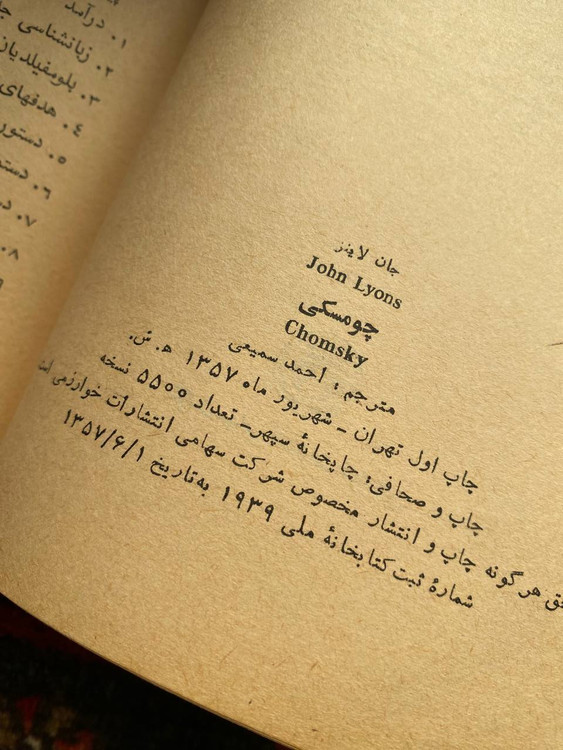 ۱. درآمد
۲. زبانشناسی
۳. بلومفیلدیان
۴. هدفهای
۵. دستور
۶.
۷.
۸.
جان لاینز
John Lyons
چومسکی
Chomsky
مترجم: احمد سمیعی
چاپ اول تهران ـ شهریور ماه ۱۳۵۷ ه. ش.
چاپ و صحافی: چاپخانهٔ سپهر ـ تعداد ۵۵۰۰ نسخه
حق هر گونه چاپ و انتشار مخصوص شرکت سهامی انتشارات خوارزمی است
شمارهٔ ثبت کتابخانهٔ ملی ۱۹۳۹ به‌تاریخ ۱۳۵۷/۶/۱